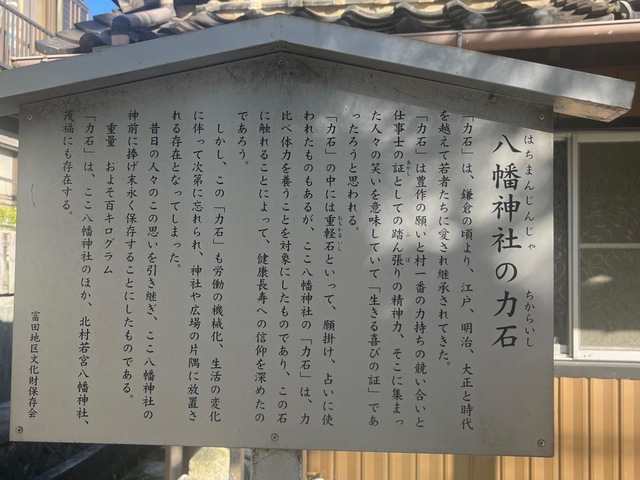 八幡神社の力石
はちまんじんじゃ ちからいし
「力石」は、鎌倉の頃より、江戸、明治、大正と時代
を越えて若者たちに愛され継承されてきた。
「力石」は豊作の願いと村一番の力持ちの競い合いと
仕事士の証としての踏ん張りの精神力、そこに集まっ
た人々の笑いを意味していて「生きる喜びの証」であ
ったろうと思われる。
「力石」の中には重軽石といって、願掛け、占いに使
われたものもあるが、ここ八幡神社の「力石」は、力
比べ体力を養うことを対象にしたものであり、この石
に触れることによって、健康長寿への信仰を深めたの
であろう。
しかし、この「力石」も労働の機械化、生活の変化
に伴って次第に忘れられ、神社や広場の片隅に放置さ
れる存在となってしまった。
昔日の人々のこの思いを引き継ぎ、ここ八幡神社の
神前に捧げ末永く保存することにしたものである。
重量 およそ百キログラム
「力石」は、ここ八幡神社のほか、北村若宮八幡神社、
茂福にも存在する。
富田地区文化財保存会